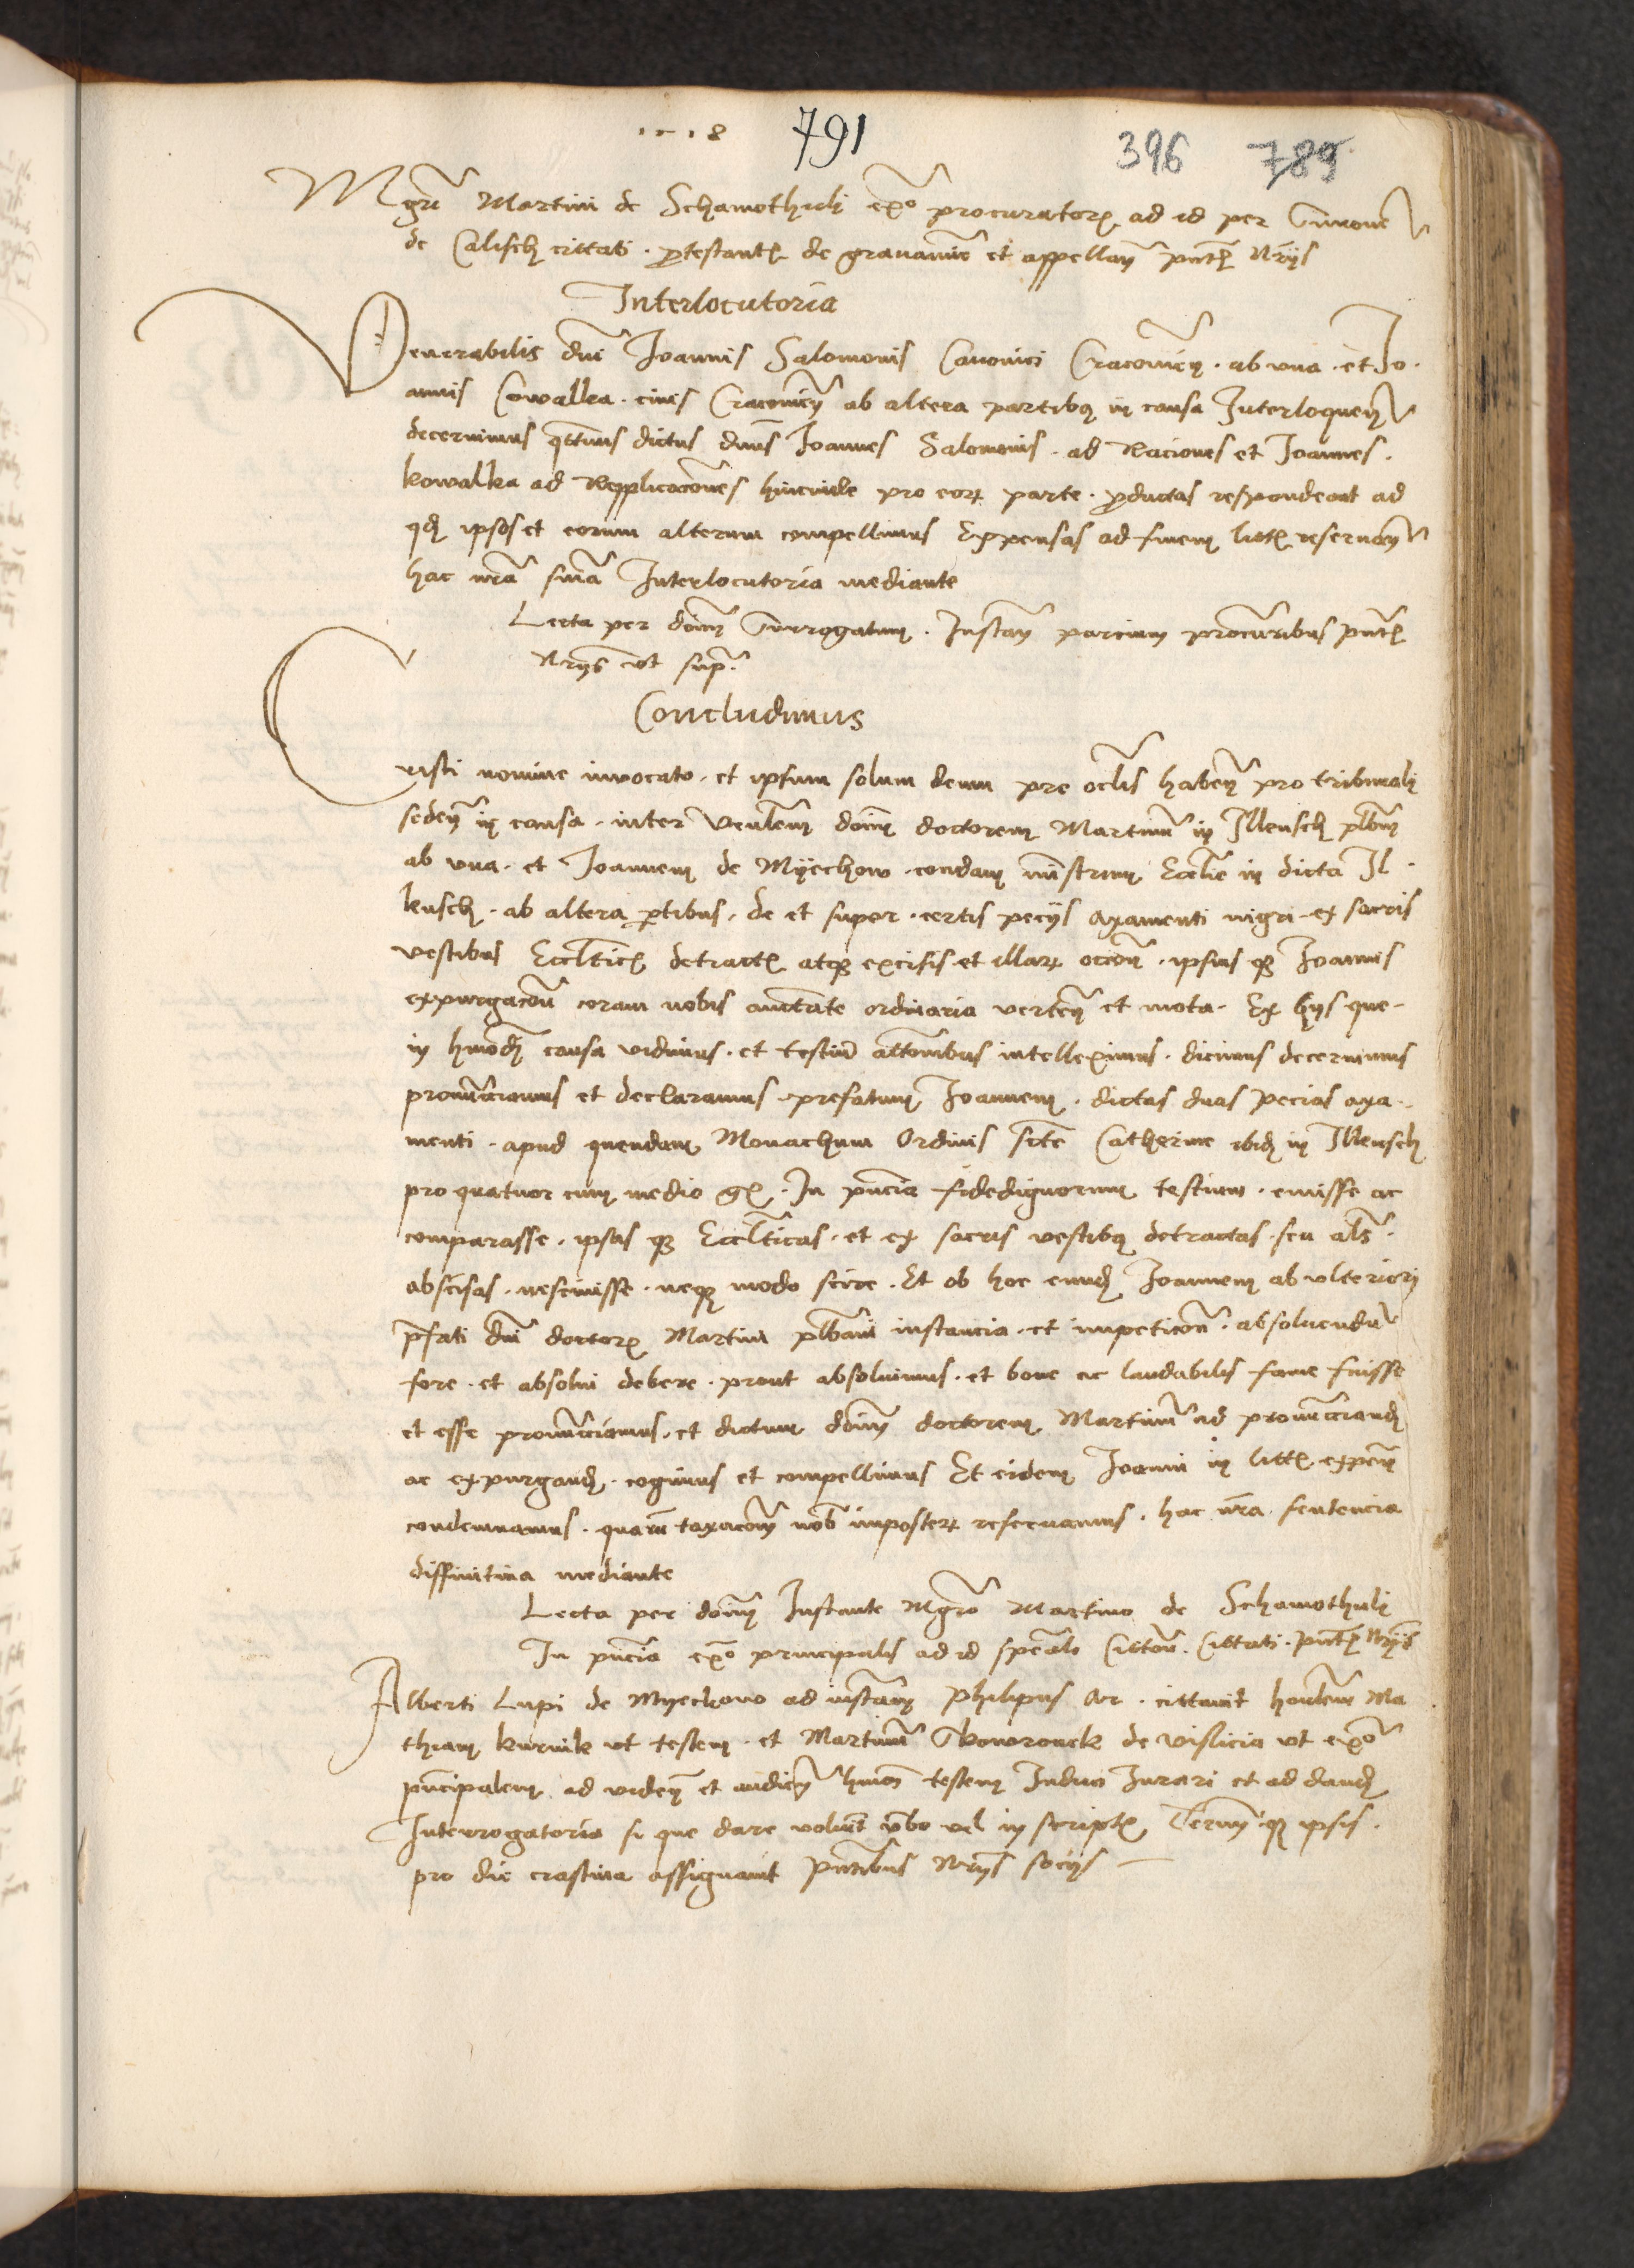 1518 791 396 789
Mgri Martini de Schamothuli exo procuratoris ad id per Simone
de Calisch cittati. protestantis de gravamine et appellan pntes Nrijs
Interlocutoria
Venerabilis dni Joannis Salomonis Canonici Cracovien. ab una. et Jo.
annis Cowalka. civis Cracovien ab altera partibus in causa Interloquen
decernimus qtinus dictus dnus Joannes Salomonis. ad Raciones et Joannes.
kowalka ad Repplicaciones hincinde pro eor parte. productas respondeant ad
qd ipsos et eorum alterum compellimus Expensas ad finem litis reservan
hac nra snia Interlocutoria mediante
Lecta per dom Surrogatum. Instan parcium procuribus pnte
Nrijs ut supr.
Concludimus
Cristi nomine invocato. et ipsum solum deum pre oclis haben pro tribunali
seden in causa. inter Venlem dom doctorem Martinu in Ilkusch plbm
ab una. et Joannem de Myechow. condam mistrum Ecclie in dicta Il.
kusch. ab altera ptibus. de et super. certis pecijs axamenti nigri. ex sacris
vestibus Ecclticis detractis atque excisis et illar occone. ipsius que Joannis
expurgacone coram nobis auctate ordinaria verten et mota. Ex hijs que.
in hmodi causa vidimus. et testiu attonibus intelleximus. dicimus decernimus
pronucciamus et declaramus prefatum Joannem. dictas duas pecias axa.
menti. apud quendam Monachum Ordinis scte Catherine ibid in Ilkusch
pro quatuor cum medio gr. In pncia fidedignorum testium. emisse ac
comparasse. ipsas que Ecclticas. et ex sacris vestibus detractas. seu als.
abscisas. nescivisse. neque modo scire. Et ob hoc eund Joannem ab ulteriori
pfati dni doctoris Martini plbani instancia. et impeticone. absolvendu
fore. et absolvi debere. prout absolvimus. et bone ac laudabilis fame fuisse
et esse pronucciamus. et dictum dom doctorem Martinu ad pronucciand
ac expurgand. cogimus et compellimus Et eidem Joanni in litis expen
condemnamus. quaru taxacom nob imposter reservamus. hac nra. sentencia
diffinitiva mediante
Lecta per dom Instante Mgro Martino de Schamothuli
In pncia exo principalis ad id speali Citton. Cittati. pnte Nrijs
Alberti Lupi de Myechovo ad instan Philipus Ar. cittavit honlem Ma
thiam kurnik ut testem. et Martinu Skowronek de vislicia ut exo
pncipalem. ad viden et audien hmoi testem Induci Jurari et ad dand
Interrogatoria si que dare volunt vbo vel in scriptis Termin que ipsis.
pro die crastina assignavit pntibus Nrijs socijs